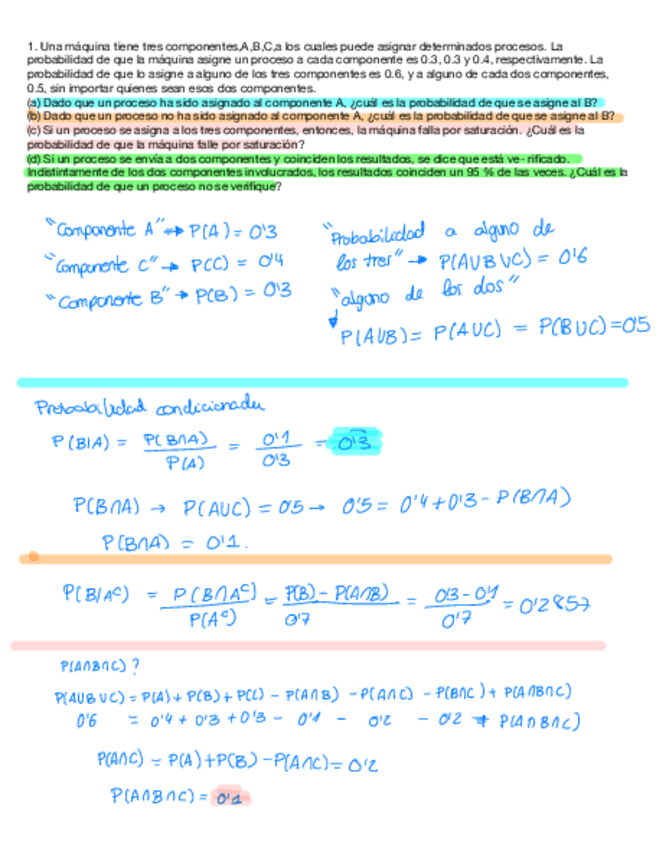 1. Una máquina tiene tres componentes,A,B,C,a los cuales puede asignar determinados procesos. La
probabilidad de que la máquina asigne un proceso a cada componente es 0.3, 0.3 y 0.4, respectivamente. La
probabilidad de que lo asigne a alguno de los tres componentes es 0.6, y a alguno de cada dos componentes,
0.5, sin importar quienes sean esos dos componentes.
(a) Dado que un proceso ha sido asignado al componente A, ¿cuál es la probabilidad de que se asigne al B?
(b) Dado que un proceso no ha sido asignado al componente A, ¿cuál es la probabilidad de que se asigne al B?
(c) Si un proceso se asigna a los tres componentes, entonces, la máquina falla por saturación. ¿Cuál es la
probabilidad de que la máquina falle por saturación?
(d) Si un proceso se envía a dos componentes y coinciden los resultados, se dice que está ve- rificado.
Indistintamente de los dos componentes involucrados, los resultados coinciden un 95 % de las veces. ¿Cuál es la
probabilidad de que un proceso no se verifique?
"Componente A" → P(A) = 0'3
"Componente C" → P(C) = 0'4
"Componente B" → P(B) = 0'3
"Probabilidad a alguno de
los tres" → P(A∪B∪C) = 0'6
"alguno de los dos"
↓
P(A∪B) = P(A∪C) = P(B∪C) = 0'5
Probabilidad condicionada
P(B|A) = P(B∩A) / P(A) = 0'1 / 0'3 = 0'3
P(B∩A) → P(A∪C) = 0'5 → 0'5 = 0'4 + 0'3 - P(B∩A)
P(B∩A) = 0'1.
P(B/Aᶜ) = P(B∩Aᶜ) / P(Aᶜ) = P(B) - P(A∩B) / 0'7 = 0'3 - 0'1 / 0'7 = 0'2857
P(A∩B∩C) ?
P(A∪B∪C) = P(A) + P(B) + P(C) - P(A∩B) - P(A∩C) - P(B∩C) + P(A∩B∩C)
0'6 = 0'4 + 0'3 + 0'3 - 0'1 - 0'2 - 0'2 + P(A∩B∩C)
P(A∩C) = P(A) + P(B) - P(A∩C) = 0'2
P(A∩B∩C) = 0'1